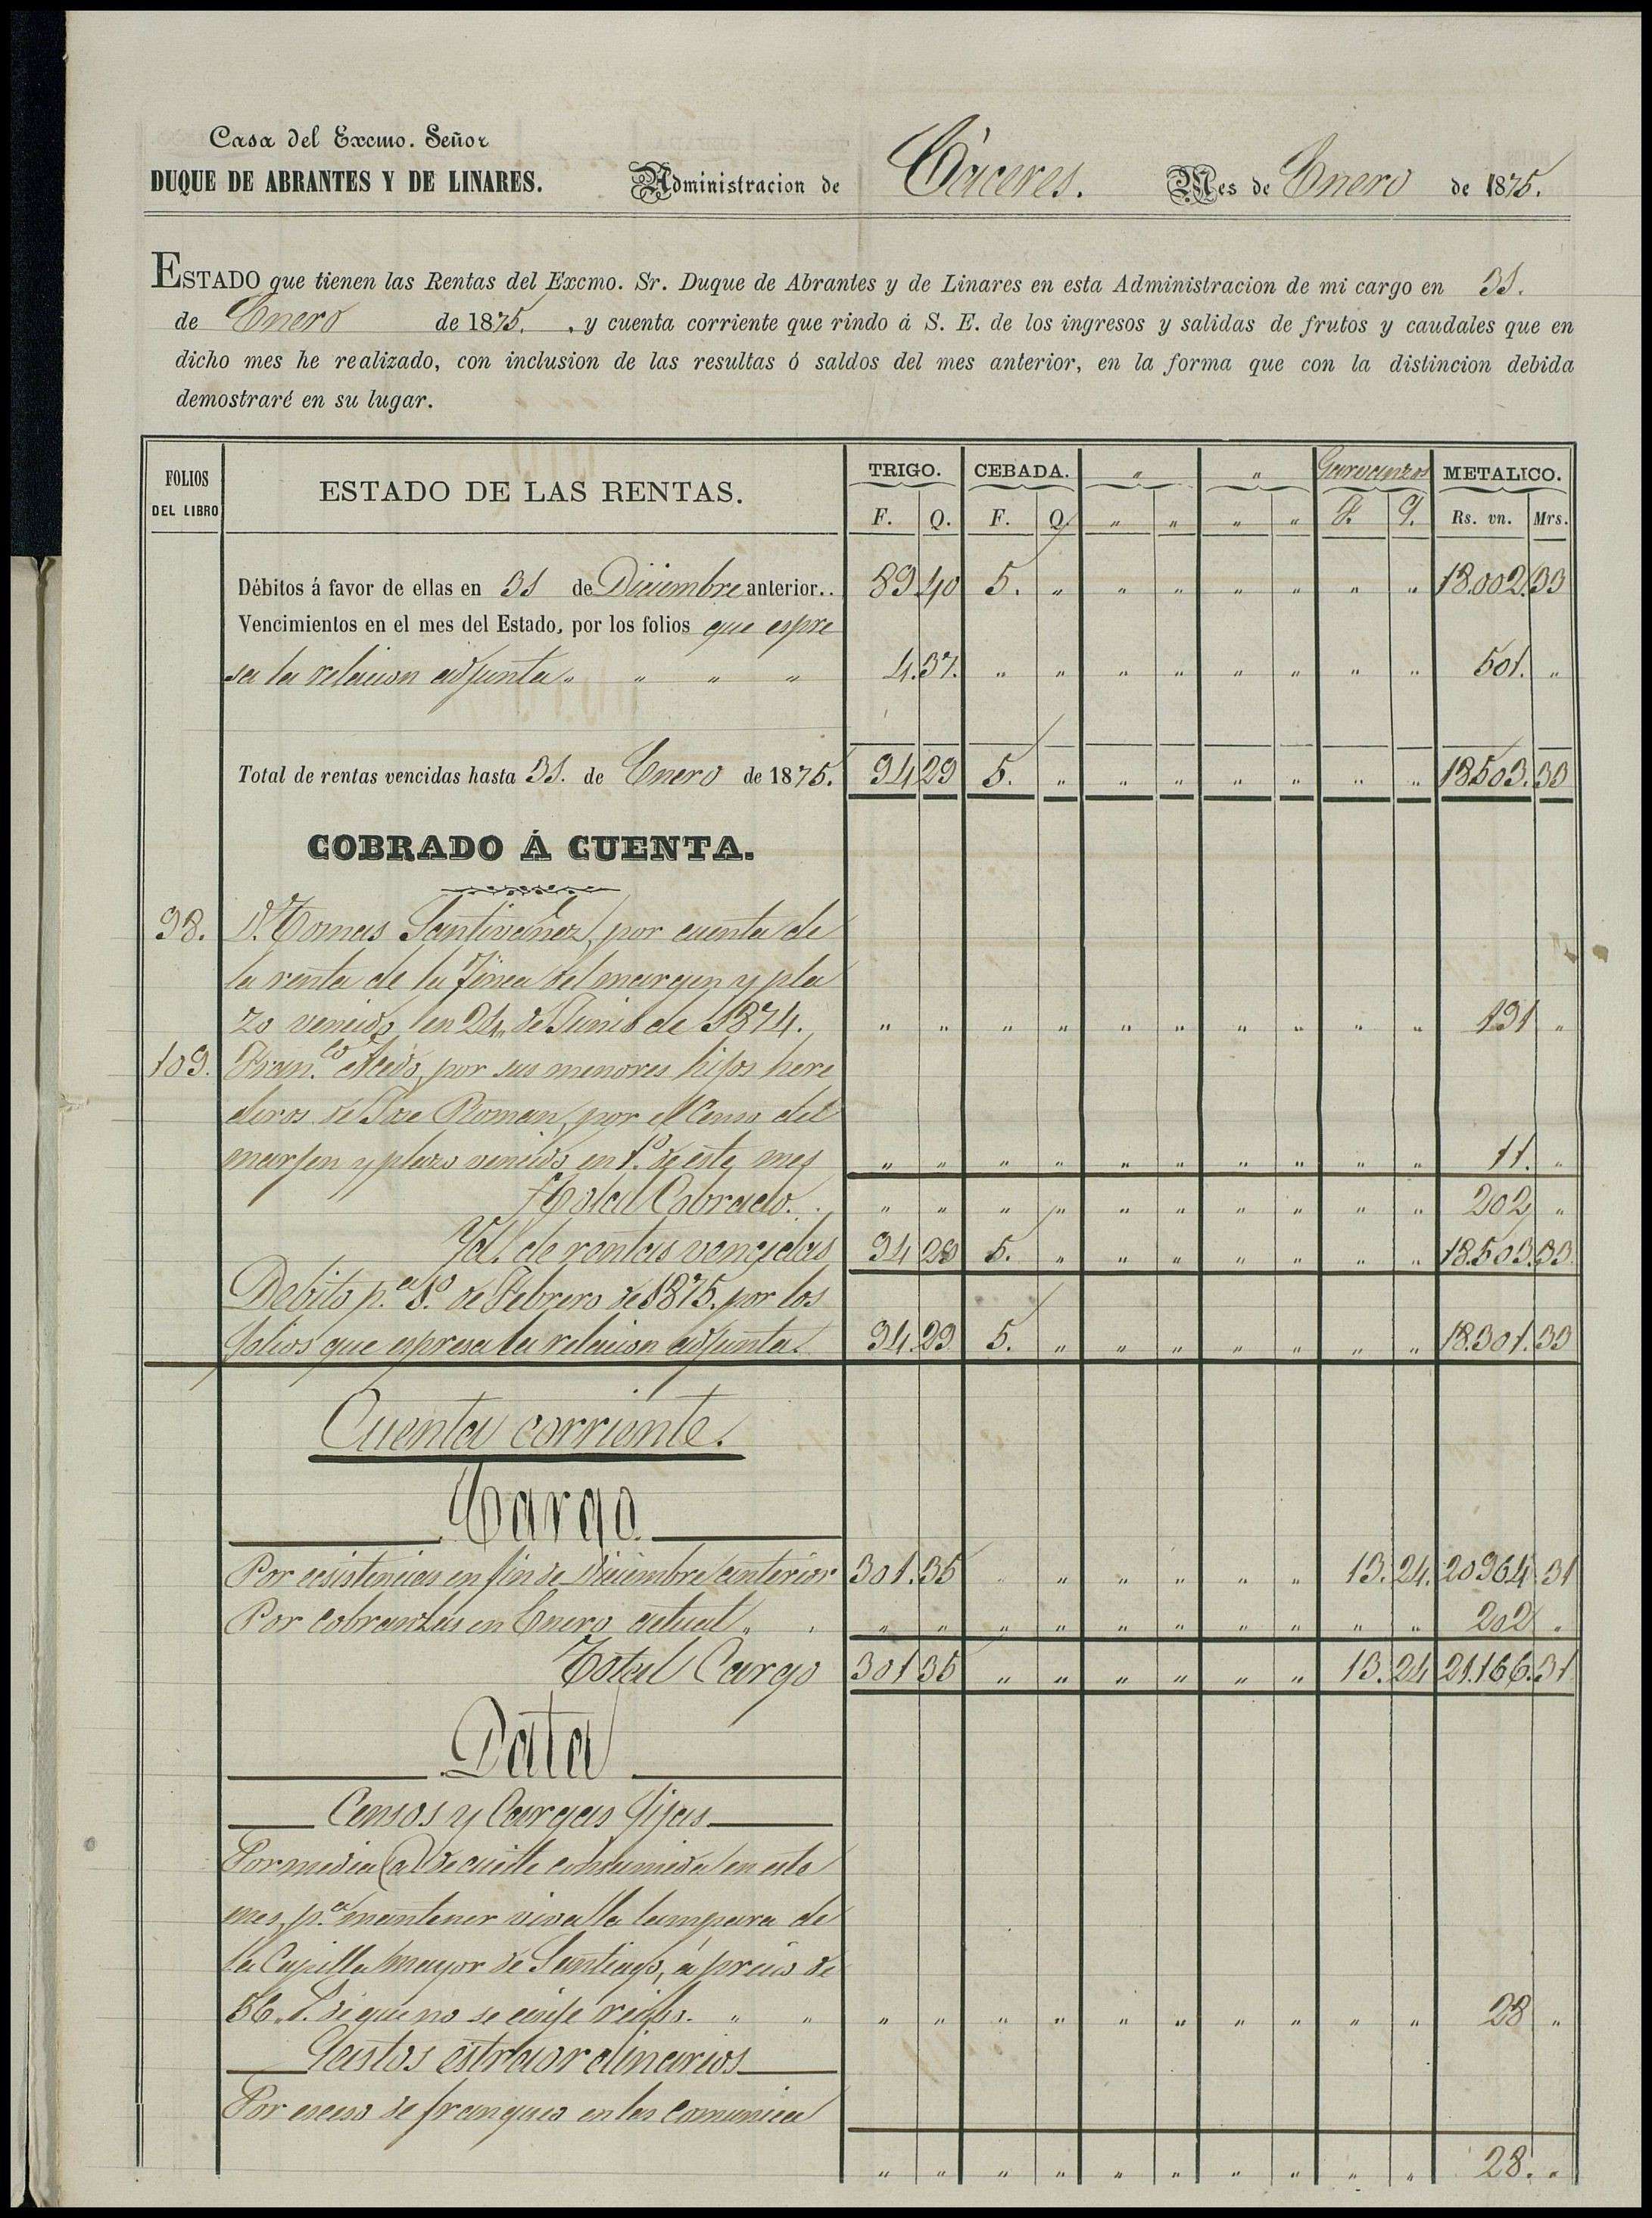 Casa del Excmo. Señor
DUQUE DE ABRANTES Y DE LINARES. Administracion de Cáceres. Mes de Enero de 1875.
ESTADO que tienen las Rentas del Excmo. Sr. Duque de Abrantes y de Linares en esta Administracion de mi cargo en 31.
de Enero de 1875. , y cuenta corriente que rindo á S. E. de los ingresos y salidas de frutos y caudales que en
dicho mes he realizado, con inclusion de las resultas ó saldos del mes anterior, en la forma que con la distincion debida
demostraré en su lugar.
FOLIOS DEL LIBRO ESTADO DE LAS RENTAS. TRIGO. CEBADA. " " Garvanzos METALICO.
F. Q. F. Q. " " " " F. Q. Rs. vn. Mrs.
Débitos á favor de ellas en 31 de Diciembre anterior.. 89 40 5. " " " " " " " 18.002. 33
Vencimientos en el mes del Estado, por los folios que espre
sa la relacion adjunta " " " " 4. 37. " " " " " " " " 501. "
Total de rentas vencidas hasta 31. de Enero de 1875. 94 29 5. " " " " " " " 18503. 33
COBRADO Á CUENTA.
98. D. Tomas Santivañez, por cuenta de
la renta de la finca del margen y pla
zo vencido en 24 de Junio de 1874. " " " " " " " " " " 191 "
109. Fran.co Acedo, por sus menores hijos here
deros de Jose Roman, por el Censo del
marjen y plazo vencido en 1.º de este mes " " " " " " " " " " 11. "
Total Cobrado. " " " " " " " " " " 202 "
Yd. de rentas vencidas 94 29 5. " " " " " " " 18.503. 33.
Debito p.a 1.º de Febrero de 1875. por los
folios que espresa la relacion adjunta. 94. 29. 5. " " " " " " " 18.301. 33
Cuenta corriente.
Cargo
Por ecsistencias en fin de Diciembre anterior 301. 35 " " " " " " 13. 24. 20964. 31
Por cobranzas en Enero actual " " " " " " " " " " " 202 "
Total Cargo 301 35 " " " " " " 13. 24 21.166. 31
Data
Censos y Cargas fijas
Por media @ de aceite consumida en este
mes, p.a mantener viva la lampara de
la Capilla mayor de Santiago, á precio de
56. r. de que no se exije recibo. " " " " " " " " " " " " 28 "
Gastos estraordinarios
Por esceso de franqueo en las comunica
" " " " " " " " " " 28. "